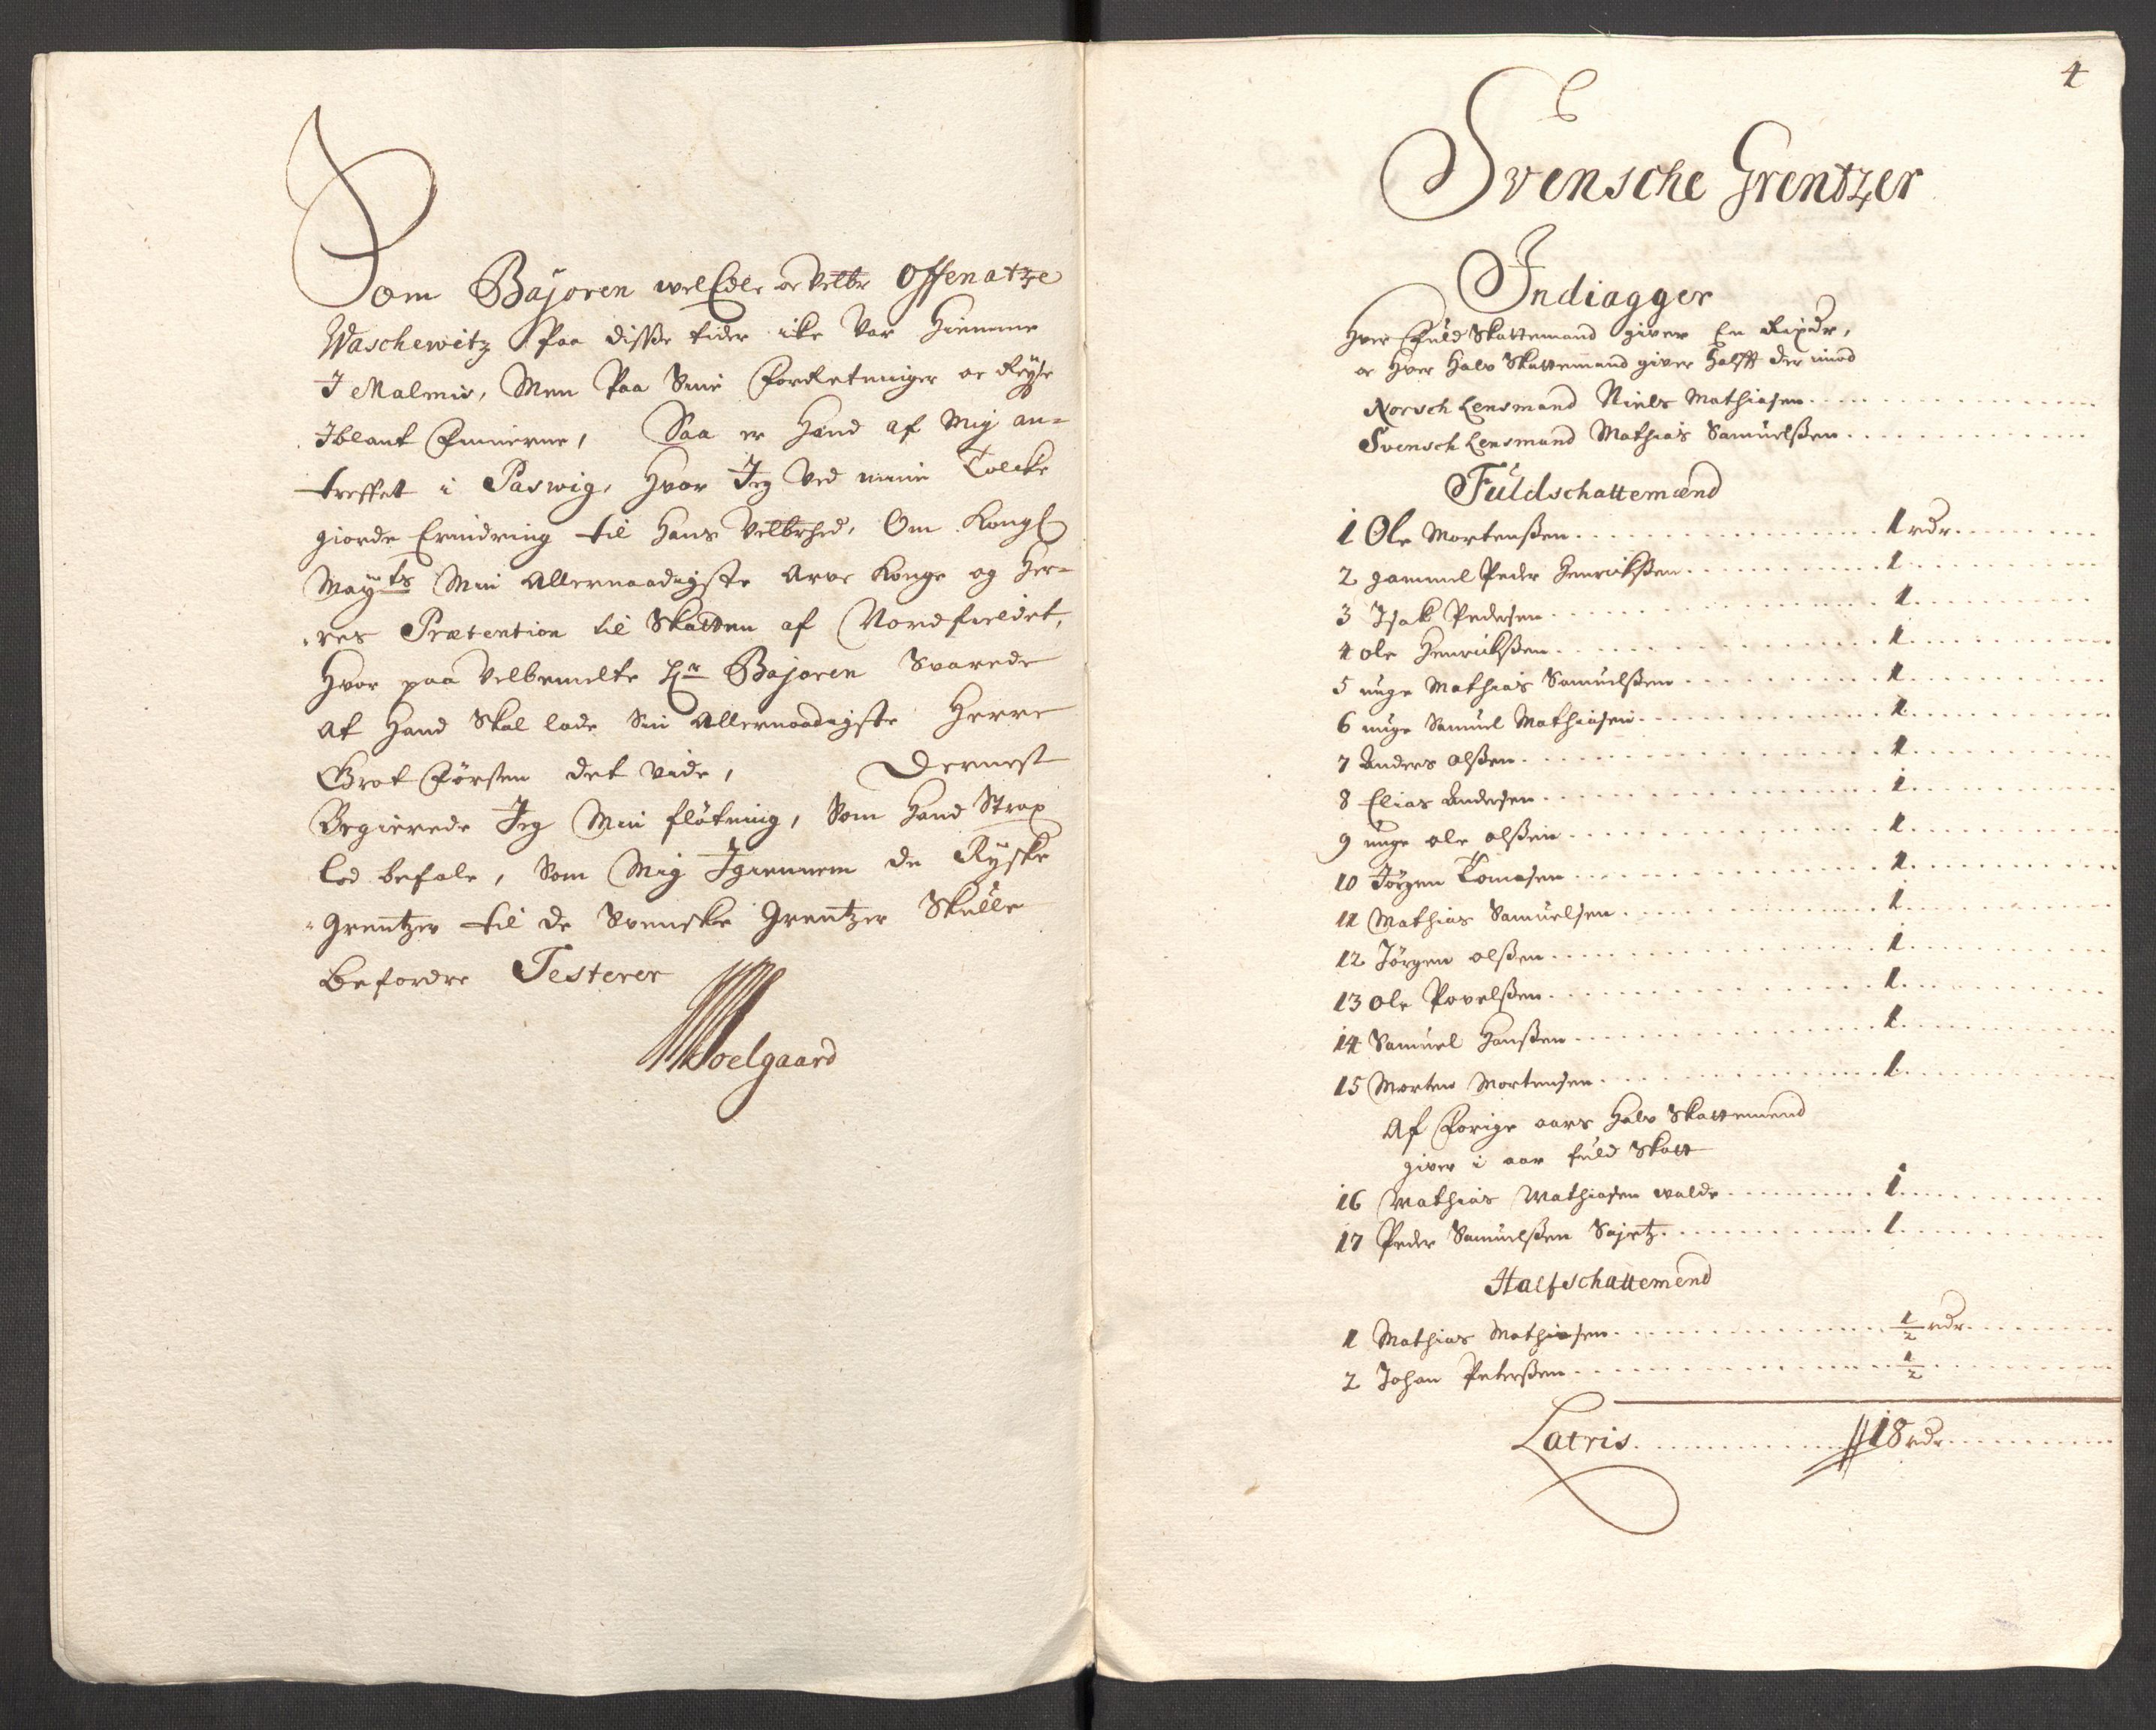 Som Bajoren welEdle oc Velbr Offenatze
Waschewitz paa disse tider icke var hiemme
I Malmis, Men paa Sine Forretninger oc Reyse
Iblant Finnerne, Saa er Hand af Mig an-
treffet i Paswig, hvor Jeg ved minn Tolcke
giorde Erindring til Hans Velbrhed, Om Kongl
Mayts Min Allernaadigste Arve Konge og Her-
res Prætention til Skatten af Nordfieldet,
Hvor paa Velbemelte Hr Bajoren Svarede
At Hand Skal lade Sin Allernaadigste Herre
Grot Førsten det vide, Dernest
Begierede Jeg Min fløtning, Som Hand Strax
lod befale, Som Mig Igiennem de Rysske
Grentzer til de Svenske Grentzer Skulle
Befordre Testerer
Soelgaard
4
Svensche Grentzer
Indiagger
Hver Fuld Skattemand giver En Rixdr,
oc Hver Halv Skattemand giver Halfft der imod
Norsch Lensmand Niels Mathiasen
Svensch Lensmand Mathias Samuelssen
Fuldschattemænd
1 Ole Mortenssen 1 rdr
2 gammel Peder Henrickssen 1
3 Isak Pedersen 1
4 Ole Henrickssen 1
5 unge Mathias Samuelssen 1
6 unge Samuel Mathiasen 1
7 Anders Olssen 1
8 Elias Andersen 1
9 unge Ole Olssen 1
10 Jørgen Tomasen 1
11 Mathias Samuelsen 1
12 Jørgen Olssen 1
13 Ole Povelssen 1
14 Samuel Hanssen 1
15 Morten Mortensen 1
Af Forige aars Halv Skattemend
giver i aar fuld Skatt
16 Mathias Mathiasen walde 1
17 Peder Samuelssen Sajetz 1
Halfschattemend
1 Mathias Mathiasen 1/2 rdr
2 Johan Peterssen 1/2
Latris 18 rdr